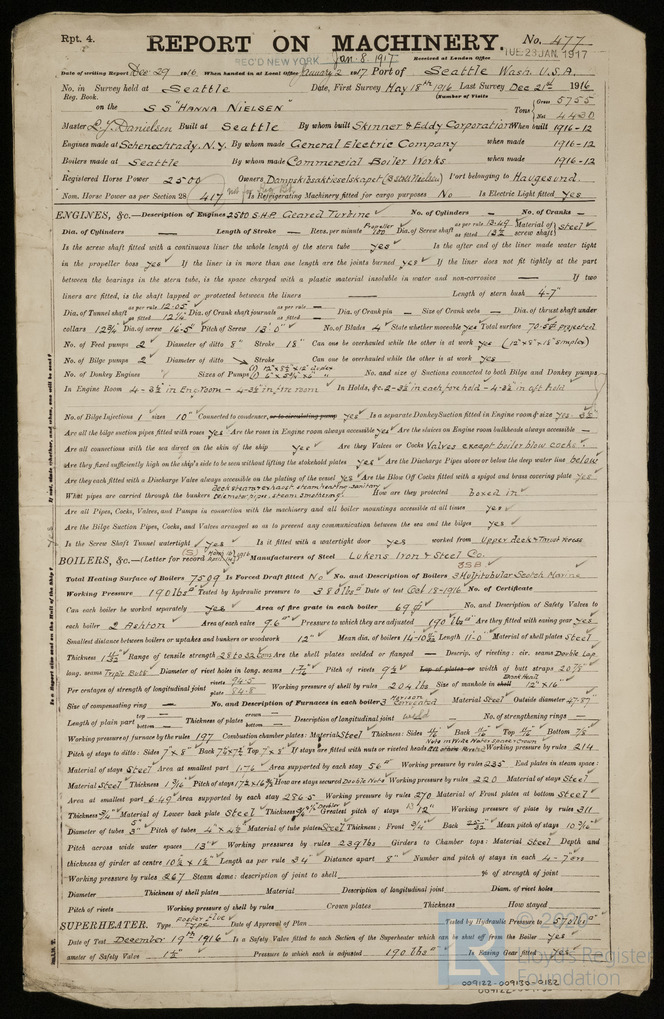 Rpt. 4.
REPORT ON MACHINERY. No. 477
REC'D NEW YORK Jan. 8. 1917 Received at London Office TUE. 23 JAN. 1917
Date of writing Report Dec 29 1916 When handed in at Local Office January 2 1917 Port of Seattle Wasn. U.S.A.
No. in Survey held at Seattle Date, First Survey May 18th 1916 Last Survey Dec 21st 1916
Reg. Book. (Number of Visits
on the S S "HANNA NIELSEN" Tons Gross 5755 Net 4430
Master L. J. Danielsen Built at Seattle By whom built Skinner & Eddy Corporation When built 1916-12
Engines made at Schenechtady, N.Y. By whom made General Electric Company when made 1916-12
Boilers made at Seattle By whom made Commercial Boiler Works when made 1916-12
Registered Horse Power 2500 Owners Dampskibsaktieselskapet Port belonging to Haugesund.
Nom. Horse Power as per Section 28 417 Is Refrigerating Machinery fitted for cargo purposes No Is Electric Light fitted Yes
ENGINES, &c.—Description of Engines 2500 S.H.P. Geared Turbine No. of Cylinders — No. of Cranks —
Dia. of Cylinders — Length of Stroke — Revs. per minute Propeller Dia. of Screw shaft as per rule 13.49 as fitted 13½ Material of screw shaft Steel
Is the screw shaft fitted with a continuous liner the whole length of the stern tube yes Is the after end of the liner made water tight
in the propeller boss yes If the liner is in more than one length are the joints burned yes If the liner does not fit tightly at the part
between the bearings in the stern tube, is the space charged with a plastic material insoluble in water and non-corrosive — If two
liners are fitted, is the shaft lapped or protected between the liners Length of stern bush 4-7"
Dia. of Tunnel shaft as per rule 12.05 as fitted 12¼ Dia. of Crank shaft journals as per rule — as fitted — Dia. of Crank pin — Size of Crank webs — Dia. of thrust shaft under
collars 12¾ Dia. of screw 16-5 Pitch of Screw 13' 0" No. of Blades 4 State whether moveable yes Total surface 70.58 projected
No. of Feed pumps 2 Diameter of ditto 8" Stroke 18" Can one be overhauled while the other is at work yes (12"x8"x18" simplex)
No. of Bilge pumps 2 Diameter of ditto Stroke Can one be overhauled while the other is at work yes
No. of Donkey Engines Sizes of Pumps No. and size of Suctions connected to both Bilge and Donkey pumps
In Engine Room 4-3½ in Eng. room - 4-3½ in fire room In Holds, &c. 2-3½ in each fore hold - 4-3½ in aft hold
No. of Bilge Injections 1 sizes 10" Connected to condenser, or to circulating pump yes Is a separate Donkey Suction fitted in Engine room & size yes - 3½
Are all the bilge suction pipes fitted with roses yes Are the roses in Engine room always accessible yes Are the sluices on Engine room bulkheads always accessible —
Are all connections with the sea direct on the skin of the ship yes Are they Valves or Cocks Valves except boiler blow cocks
Are they fixed sufficiently high on the ship's side to be seen without lifting the stokehold plates yes Are the Discharge Pipes above or below the deep water line below
Are they each fitted with a Discharge Valve always accessible on the plating of the vessel yes Are the Blow Off Cocks fitted with a spigot and brass covering plate yes
What pipes are carried through the bunkers Deck steam & exhaust, steam heating, sanitary telemotor pipes, steam smothering. How are they protected boxed in
Are all Pipes, Cocks, Valves, and Pumps in connection with the machinery and all boiler mountings accessible at all times yes
Are the Bilge Suction Pipes, Cocks, and Valves arranged so as to prevent communication between the sea and the bilges yes
Is the Screw Shaft Tunnel watertight yes Is it fitted with a watertight door yes worked from Upper deck & Thrust recess
BOILERS, &c.—(Letter for record (S) ) Manufacturers of Steel Lukens Iron & Steel Co.
Total Heating Surface of Boilers 7509 Is Forced Draft fitted No No. and Description of Boilers 3 Multitubular Scotch Marine
Working Pressure 190 lbs Tested by hydraulic pressure to 380 lbs Date of test Oct 18-1916 No. of Certificate
Can each boiler be worked separately yes Area of fire grate in each boiler 69 No. and Description of Safety Valves to
each boiler 2 Ashton Area of each valve 9.6 Pressure to which they are adjusted 190 lbs Are they fitted with easing gear yes
Smallest distance between boilers or uptakes and bunkers or woodwork 12" Mean dia. of boilers Length 11-0 Material of shell plates Steel
Thickness Range of tensile strength 28 to 32 tons Are the shell plates welded or flanged — Descrip. of riveting: cir. seams Double Lap
long. seams Triple Butt Diameter of rivet holes in long. seams Pitch of rivets Lap of plates or width of butt straps 20⅞
Per centages of strength of longitudinal joint rivets 94.5 plate 84.8 Working pressure of shell by rules 204 lbs Size of manhole in shell 12" x 16"
Size of compensating ring — No. and Description of Furnaces in each boiler 3 Morison Corrugated Material Steel Outside diameter 47.87
Length of plain part top — bottom — Thickness of plates crown bottom Description of longitudinal joint weld No. of strengthening rings —
Working pressure of furnace by the rules 197 Combustion chamber plates: Material Steel Thickness: Sides Back Top Bottom ⅞
Pitch of stays to ditto: Sides 7"x8" Back Top 7"x8" If stays are fitted with nuts or riveted heads Working pressure by rules 214
Material of stays Steel Area at smallest part 1.76 Area supported by each stay 56 Working pressure by rules 235 End plates in steam space:
Material Steel Thickness 1 3/16 Pitch of stays How are stays secured Double Nuts Working pressure by rules 220 Material of stays Steel
Area at smallest part 6.49 Area supported by each stay 286.5 Working pressure by rules 270 Material of Front plates at bottom Steel
Thickness Material of Lower back plate Steel Thickness Greatest pitch of stays Working pressure of plate by rules 311
Diameter of tubes 3" Pitch of tubes 4" x 4¼ Material of tube plates Steel Thickness: Front ¾ Back Mean pitch of stays 10 3/16
Pitch across wide water spaces 13" Working pressures by rules 239 lbs Girders to Chamber tops: Material Steel Depth and
thickness of girder at centre 10½ x 1½" Length as per rule 34" Distance apart 8" Number and pitch of stays in each 4-7" crs
Working pressure by rules 267 Steam dome: description of joint to shell % of strength of joint
Diameter Thickness of shell plates Material Description of longitudinal joint Diam. of rivet holes
Pitch of rivets Working pressure of shell by rules Crown plates Thickness How stayed
SUPERHEATER. Type Foster Flue Type Date of Approval of Plan Tested by Hydraulic Pressure to 570 lbs
Date of Test December 19th 1916 Is a Safety Valve fitted to each Section of the Superheater which can be shut off from the Boiler Yes
ameter of Safety Valve 1½" Pressure to which each is adjusted 190 lbs Is Easing Gear fitted Yes
© 2020
LR Lloyd's Register
Foundation
009122-009130-0182